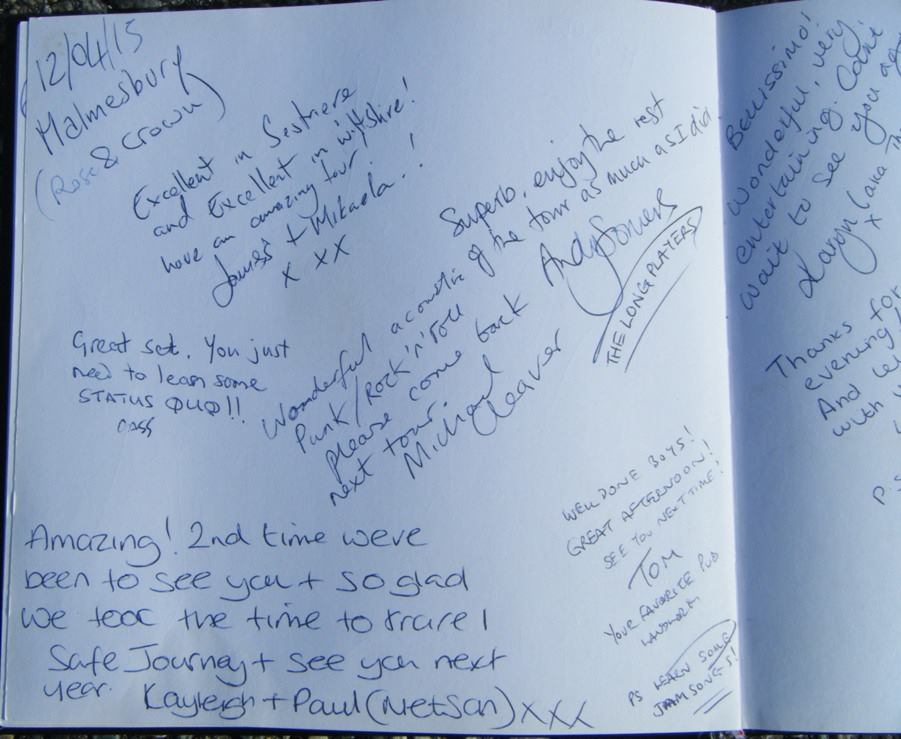 12/04/15
Malmesbury
(Rose & Crown)
Excellent in Sestriere
and Excellent in wiltshire!
have an amazing tour..!
James + Mikaela.!
x xx
Superb, enjoy the rest
of the tour as much as I did.
Andy Somers
THE LONG PLAYERS
Great set. You just
need to learn some
STATUS QUO!!
Cass
Wonderful acoustic
Punk/Rock'n'roll
please come back
next tour.
Michael Cleaver
WELL DONE BOYS!
GREAT AFTERNOON!
SEE YOU NEXT TIME!
TOM
YOUR FAVORITE PUB
LANDLORD
PS LEARN SOME
JAM SONGS!
Amazing! 2nd time were
been to see you + so glad
we took the time to travel
Safe Journey + see you next
year. Kayleigh + Paul (Nelson) xxx
Bellissimo!
Wonderful, very
entertaining. Can't
wait to see you
Karyn (aka
x
Thanks for
evening!
And
with
P.S